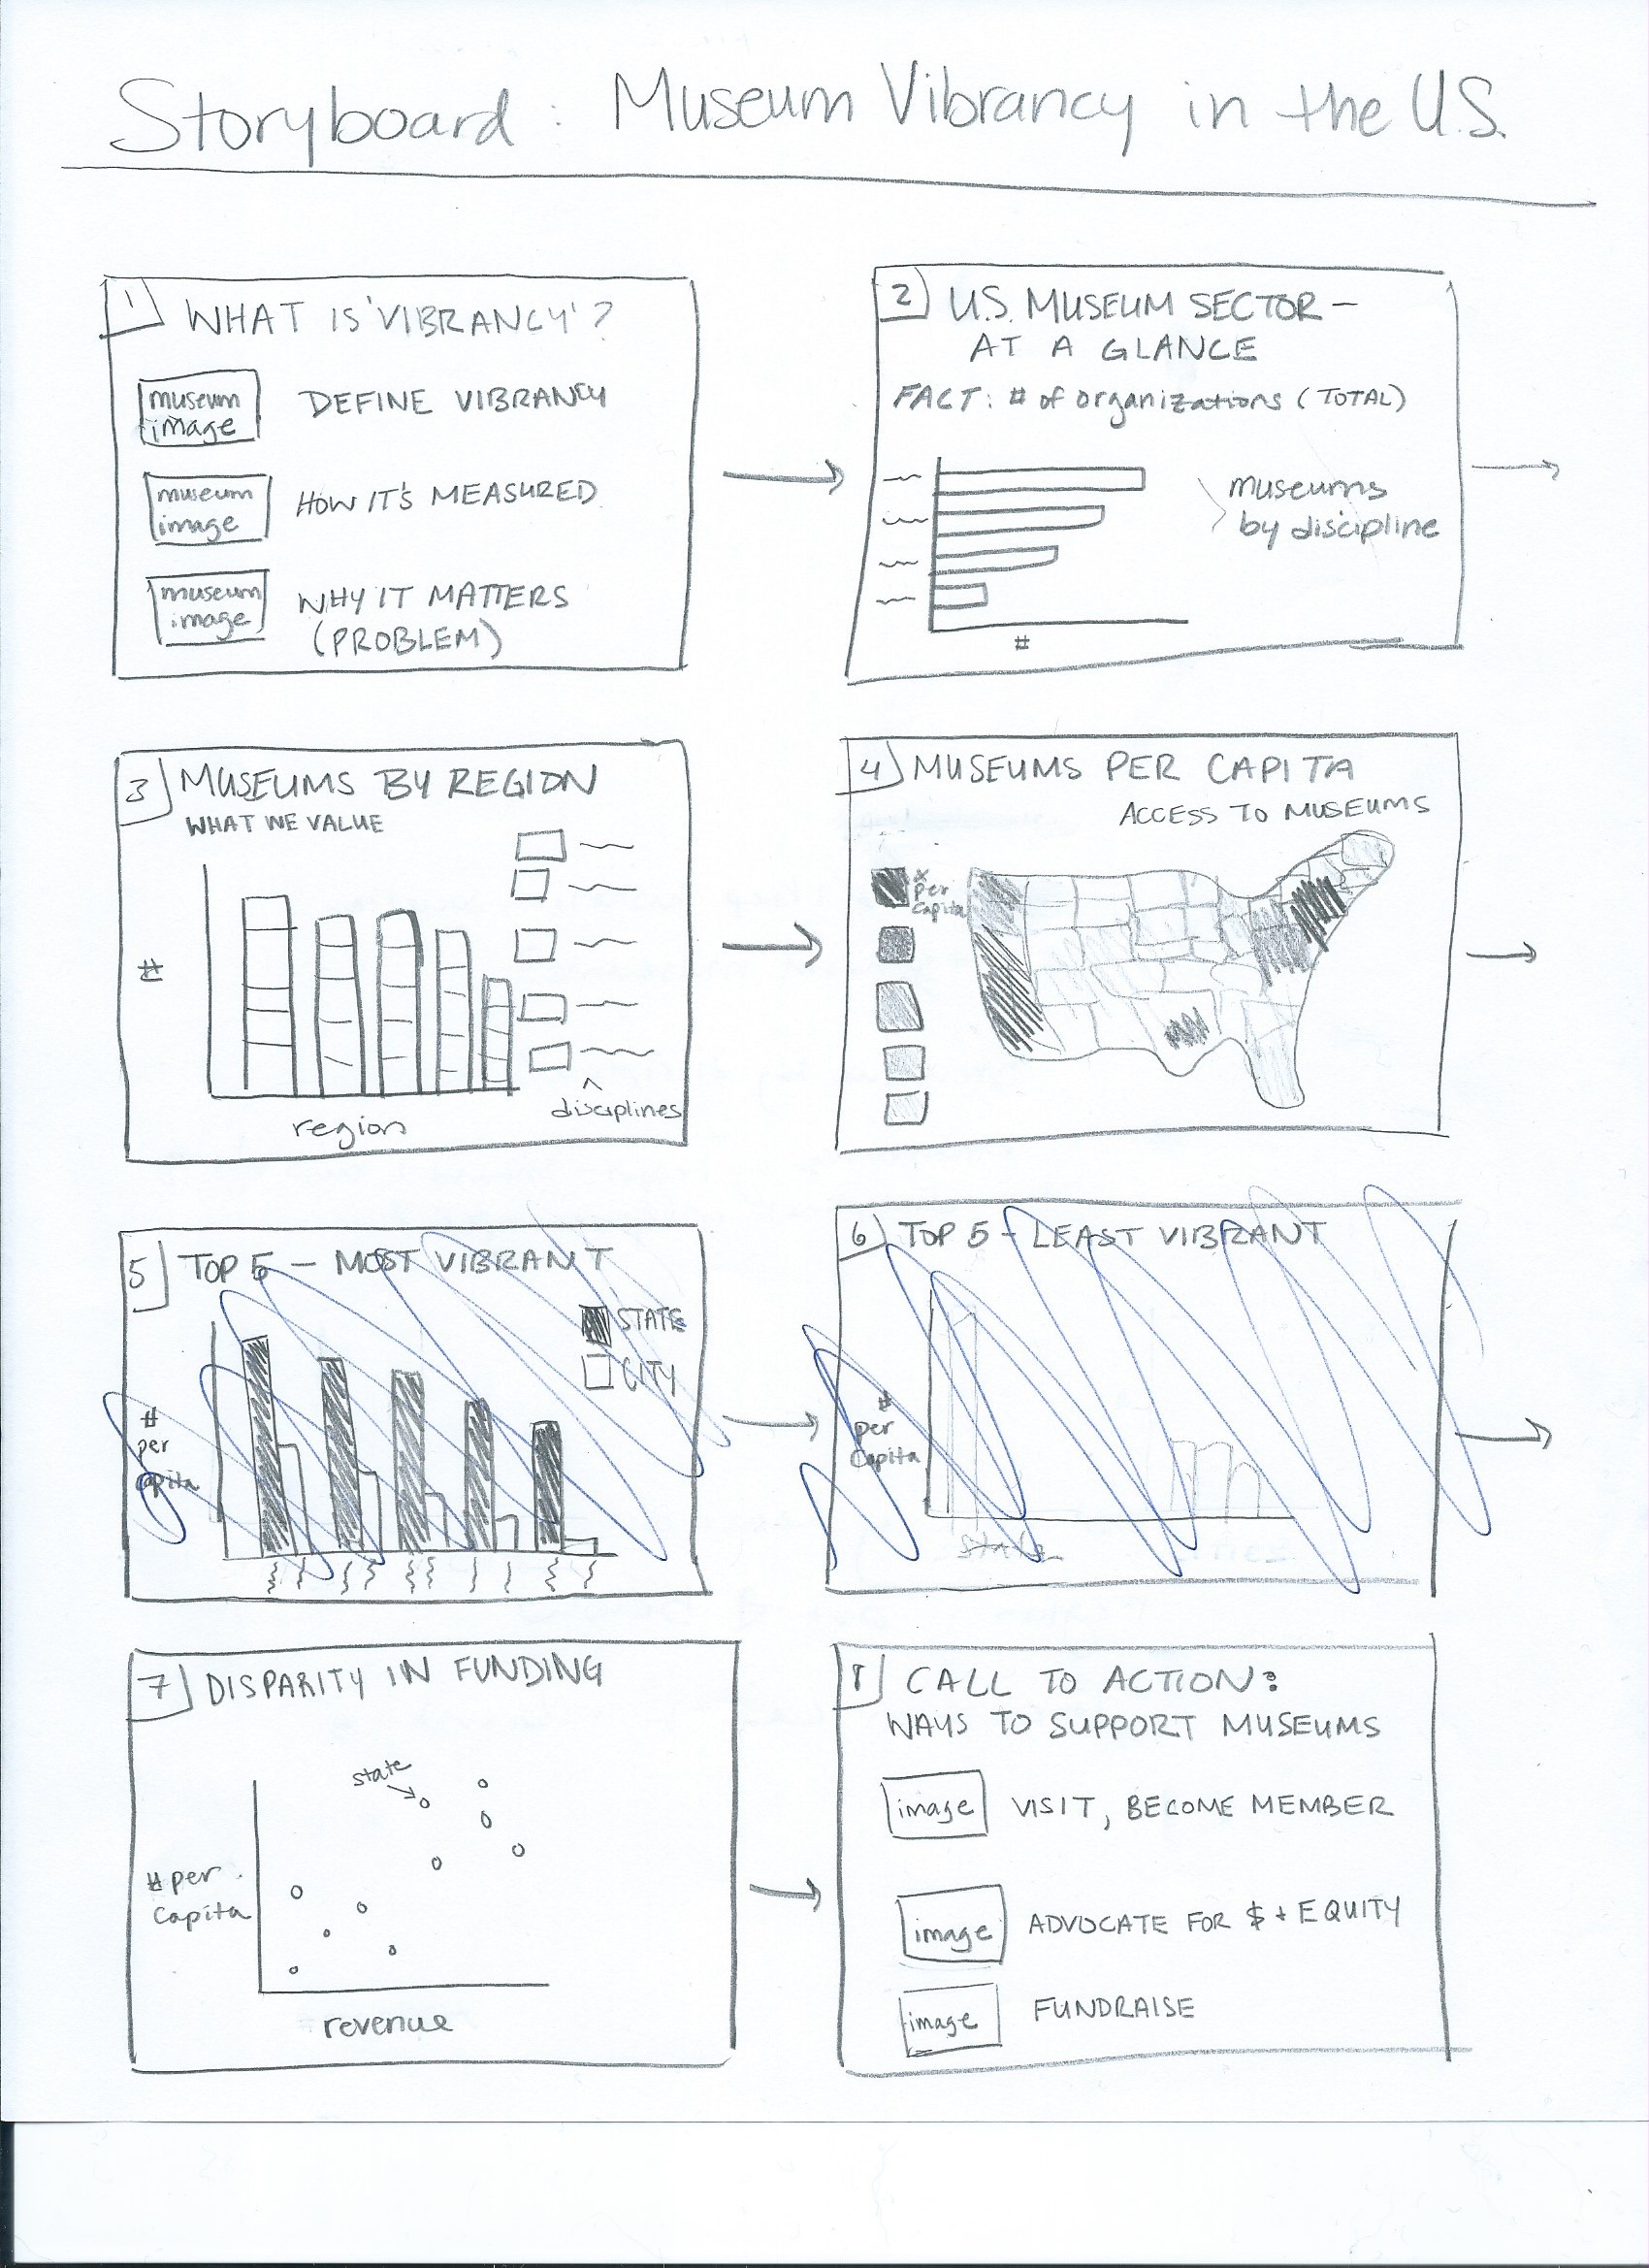 Storyboard: Museum Vibrancy in the U.S.
1
WHAT IS 'VIBRANCY'?
museum
image
DEFINE VIBRANCY
museum
image
HOW IT'S MEASURED
museum
image
WHY IT MATTERS
(PROBLEM)
2
U.S. MUSEUM SECTOR —
AT A GLANCE
FACT: # of organizations (TOTAL)
museums
by discipline
#
3
MUSEUMS BY REGION
WHAT WE VALUE
#
region
disciplines
4
MUSEUMS PER CAPITA
ACCESS TO MUSEUMS
x
per
capita
5
TOP 5 — MOST VIBRANT
STATE
CITY
#
per
capita
6
TOP 5 - LEAST VIBRANT
#
per
capita
state
7
DISPARITY IN FUNDING
state
# per
capita
revenue
8
CALL TO ACTION:
WAYS TO SUPPORT MUSEUMS
image
VISIT, BECOME MEMBER
image
ADVOCATE FOR $ + EQUITY
image
FUNDRAISE